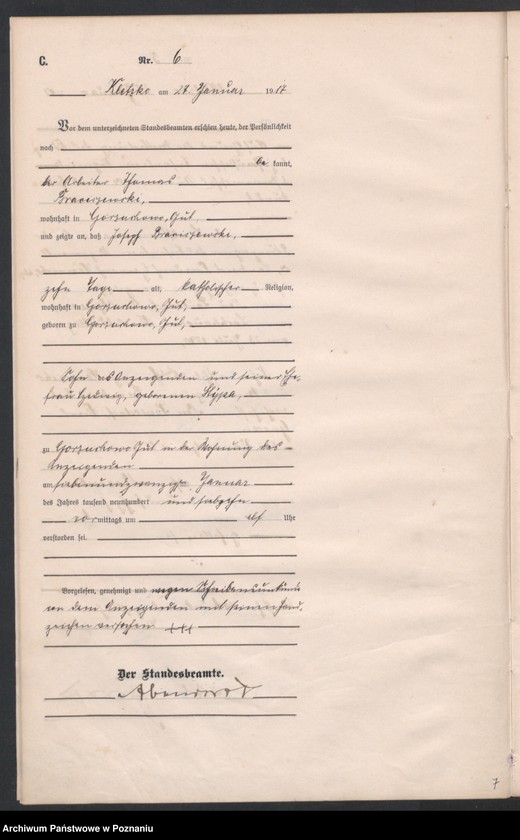 C.
Nr. 6
Kletzko am 28. Januar 1917
Vor dem unterzeichneten Standesbeamten erschien heute, der Persönlichkeit
nach
be kannt,
der Arbeiter Thomas
wohnhaft in Gut
und zeigte an, daß Joseph
zehn Tage alt, katholischer Religion,
wohnhaft in Gut,
geboren zu Gut,
Sohn des Anzeigenden und seiner Ehe-
frau Hedwig, geborenen
zu Gut in der Wohnung des
Anzeigenden
am siebenundzwanzigsten Januar
des Jahres tausend neunhundert und siebzehn
vor mittags um elf Uhr
verstorben sei.
Vorgelesen, genehmigt und wegen Schreibensunkunde
von dem Anzeigenden mit seinem Hand-
zeichen versehen +++
Der Standesbeamte.
7
Archiwum Państwowe w Poznaniu